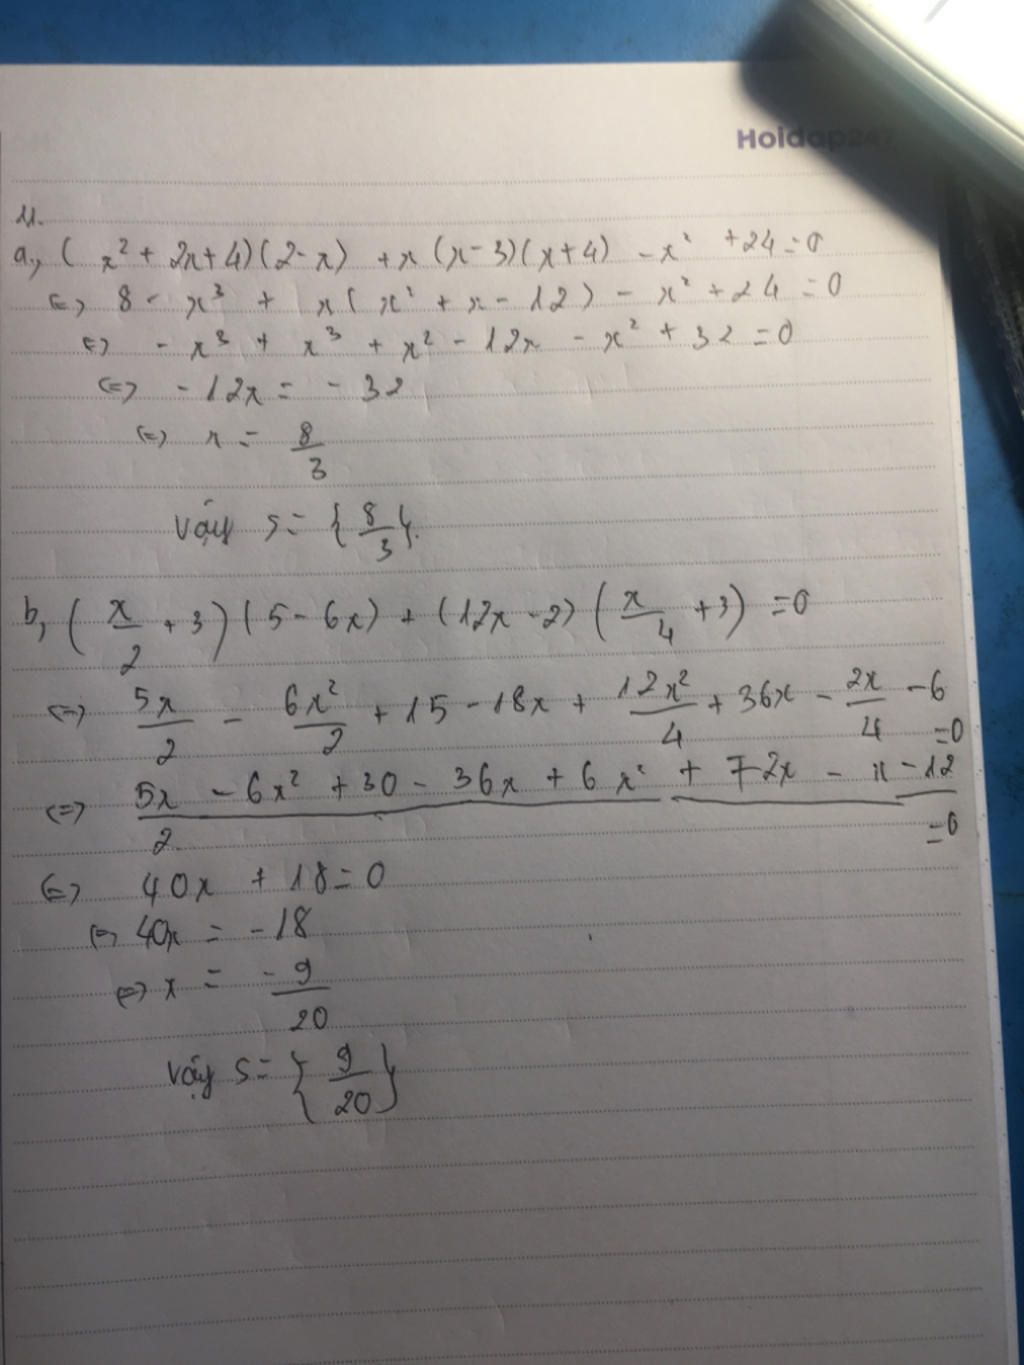 Hoidap247
11.
a, (x² + 2x + 4)(2 - x) + x(x - 3)(x + 4) - x² + 24 = 0
<=> 8 - x³ + x(x² + x - 12) - x² + 24 = 0
<=> - x³ + x³ + x² - 12x - x² + 32 = 0
<=> - 12x = - 32
<=> x = 8/3
Vậy S = {8/3}.
b, (x/2 + 3)(5 - 6x) + (12x - 2)(x/4 + 3) = 0
<=> 5x/2 - 6x²/2 + 15 - 18x + 12x²/4 + 36x - 2x/4 - 6 = 0
<=> (5x - 6x² + 30 - 36x + 6x² + 72x - x - 12)/2 = 0
<=> 40x + 18 = 0
<=> 40x = - 18
<=> x = -9/20
Vậy S = {9/20}